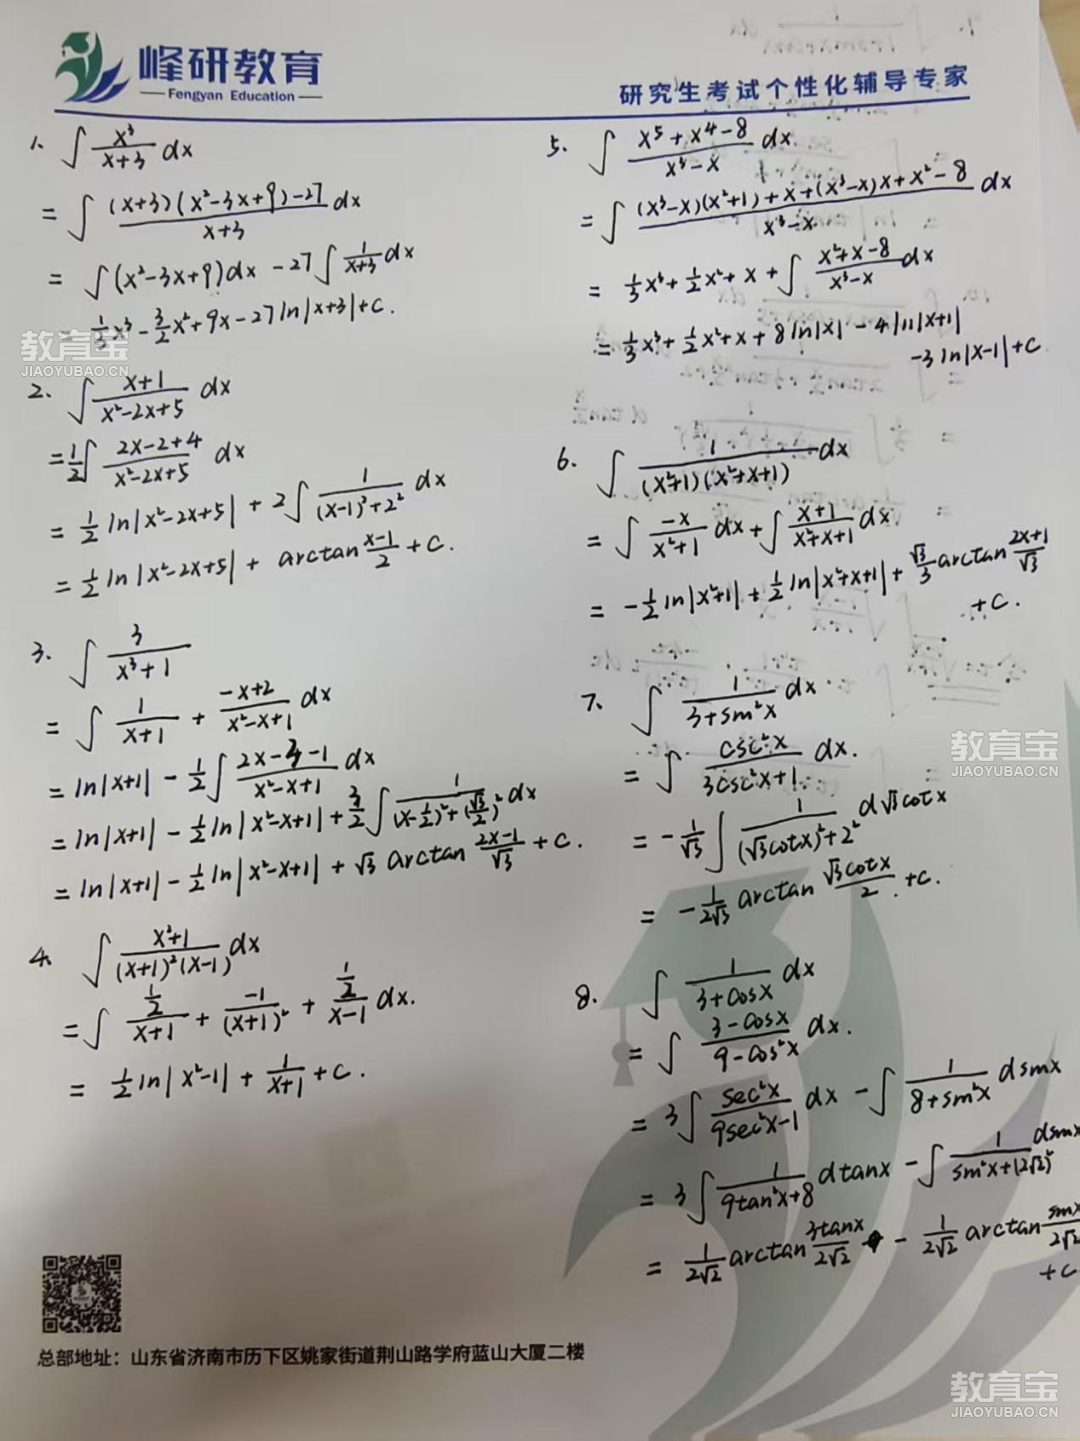 峰研教育
Fengyan Education
研究生考试个性化辅导专家
1. ∫ x³/(x+3) dx
= ∫ ((x+3)(x²-3x+9)-27)/(x+3) dx
= ∫(x²-3x+9)dx - 27∫ 1/(x+3) dx
= 1/3 x³ - 3/2 x² + 9x - 27 ln|x+3| + C.
2. ∫ (x+1)/(x²-2x+5) dx
= 1/2 ∫ (2x-2+4)/(x²-2x+5) dx
= 1/2 ln|x²-2x+5| + 2∫ 1/((x-1)²+2²) dx
= 1/2 ln|x²-2x+5| + arctan (x-1)/2 + C.
3. ∫ 3/(x³+1)
= ∫ 1/(x+1) + (-x+2)/(x²-x+1) dx
= ln|x+1| - 1/2 ∫ (2x-3-1)/(x²-x+1) dx
= ln|x+1| - 1/2 ln|x²-x+1| + 3/2 ∫ 1/((x-1/2)²+(√3/2)²) dx
= ln|x+1| - 1/2 ln|x²-x+1| + √3 arctan (2x-1)/√3 + C.
4. ∫ (x²+1)/((x+1)²(x-1)) dx
= ∫ (1/2)/(x+1) + (-1)/(x+1)² + (1/2)/(x-1) dx.
= 1/2 ln|x²-1| + 1/(x+1) + C.
5. ∫ (x⁵+x⁴-8)/(x³-x) dx.
= ∫ ((x³-x)(x²+1)+x+(x³-x)x+x²-8)/(x³-x) dx
= 1/3 x³ + 1/2 x² + x + ∫ (x²+x-8)/(x³-x) dx
= 1/3 x³ + 1/2 x² + x + 8 ln|x| - 4 ln|x+1|
-3 ln|x-1| + C
6. ∫ 1/((x²+1)(x²+x+1)) dx
= ∫ -x/(x²+1) dx + ∫ (x+1)/(x²+x+1) dx
= -1/2 ln|x²+1| + 1/2 ln|x²+x+1| + √3/3 arctan (2x+1)/√3
+C.
7. ∫ 1/(3+sin²x) dx
= ∫ csc²x/(3csc²x+1) dx.
= -1/√3 ∫ 1/((√3cotx)²+2²) d√3cotx
= -1/(2√3) arctan (√3cotx)/2 + C.
8. ∫ 1/(3+cosx) dx
= ∫ (3-cosx)/(9-cos²x) dx.
= 3∫ sec²x/(9sec²x-1) dx - ∫ 1/(8+sin²x) dsinx
= 3∫ 1/(9tan²x+8) dtanx - ∫ 1/(sin²x+(2√2)²) dsinx
= 1/(2√2) arctan (3tanx)/(2√2) - 1/(2√2) arctan sinx/(2√2)
+C
总部地址：山东省济南市历下区姚家街道荆山路学府蓝山大厦二楼
教育宝
JIAOYUBAO.CN
教育宝
JIAOYUBAO.CN
教育宝
JIAOYUBAO.CN